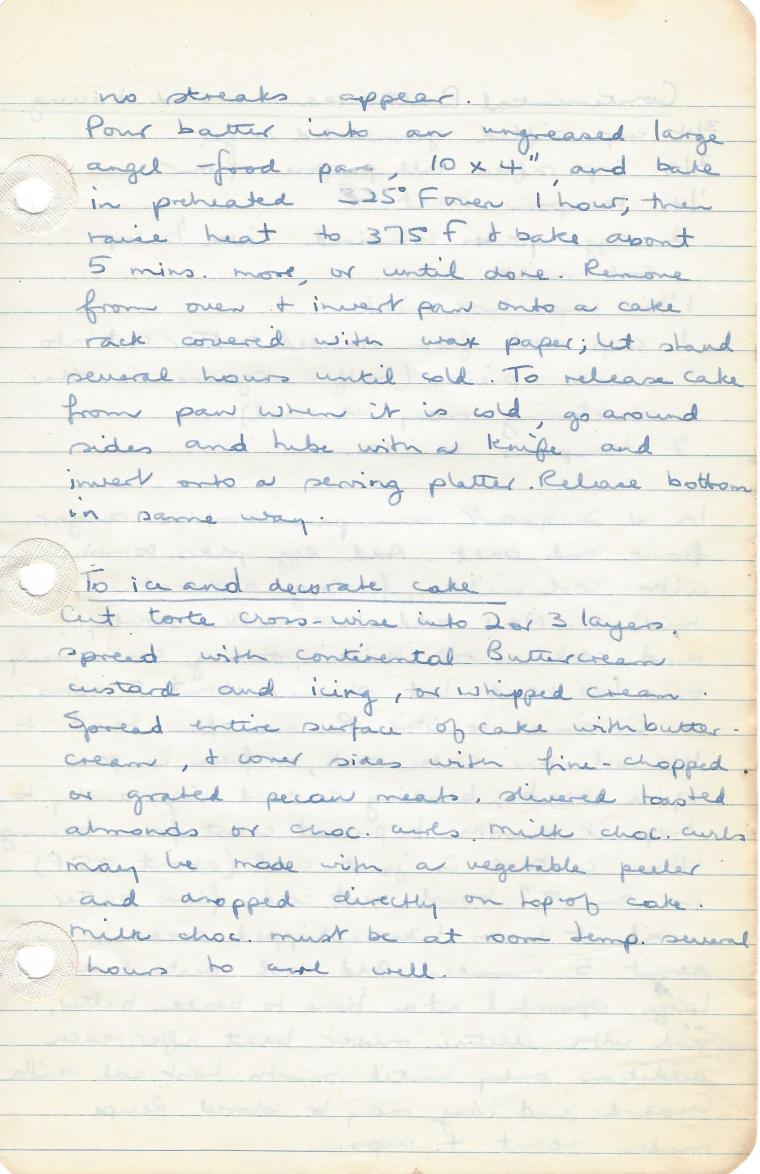 no streaks appear.
Pour batter into an ungreased large
angel-food pan, 10 x 4", and bake
in preheated 325° F oven 1 hour, then
raise heat to 375 F & bake about
5 mins. more, or until done. Remove
from oven & invert pan onto a cake
rack covered with wax paper; let stand
several hours until cold. To release cake
from pan when it is cold, go around
sides and tube with a knife and
invert onto a serving platter. Release bottom
in same way.
To ice and decorate cake
Cut torte cross-wise into 2 or 3 layers.
spread with continental Buttercream
custard and icing, or whipped cream.
Spread entire surface of cake with butter-
cream, & cover sides with fine-chopped
or grated pecan meats. slivered toasted
almonds or choc. curls. Milk choc. curls
may be made with a vegetable peeler
and dropped directly on top of cake.
Milk choc. must be at room temp. several
hours to curl well.